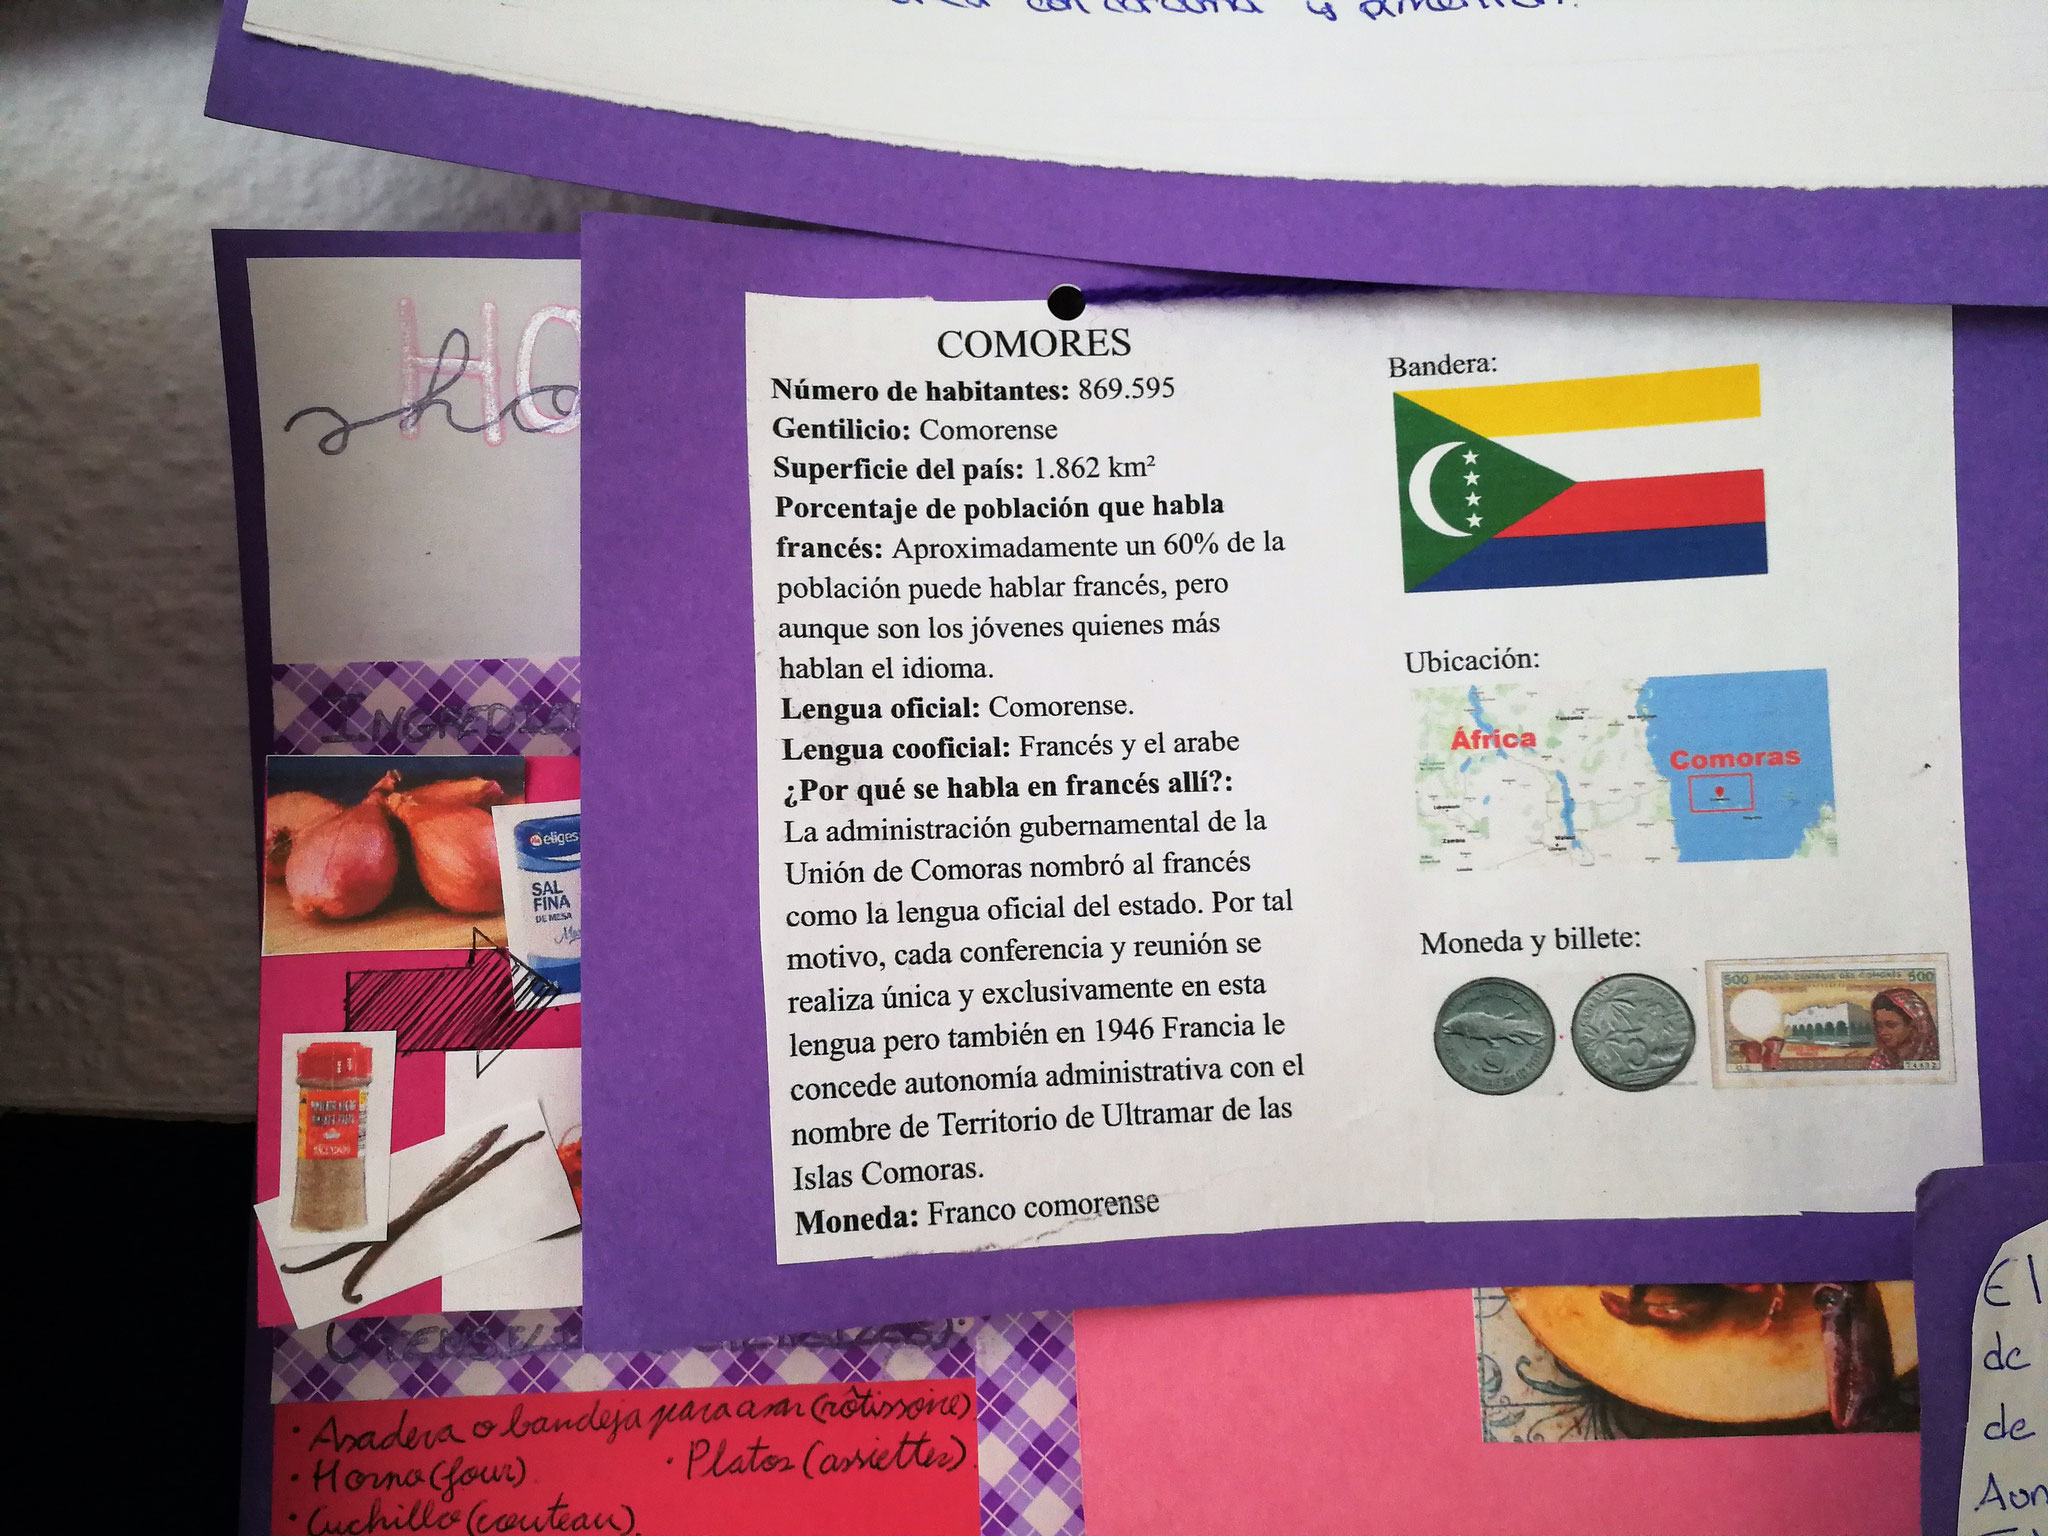 COMORES
Número de habitantes: 869.595
Gentilicio: Comorense
Superficie del país: 1.862 km²
Porcentaje de población que habla
francés: Aproximadamente un 60% de la
población puede hablar francés, pero
aunque son los jóvenes quienes más
hablan el idioma.
Lengua oficial: Comorense.
Lengua cooficial: Francés y el arabe
¿Por qué se habla en francés allí?:
La administración gubernamental de la
Unión de Comoras nombró al francés
como la lengua oficial del estado. Por tal
motivo, cada conferencia y reunión se
realiza única y exclusivamente en esta
lengua pero también en 1946 Francia le
concede autonomía administrativa con el
nombre de Territorio de Ultramar de las
Islas Comoras.
Moneda: Franco comorense
Bandera:
Ubicación:
África
Comoras
Moneda y billete:
500 BANQUE CENTRALE DES COMORES 500
5
HO
ho
INGREDIE
eliges
SAL
FINA
DE MESA
UTENSILI
• Asadera o bandeja para asar (rôtissoire)
• Horno (four)
• Platos (assiettes)
• Cuchillo (couteau)
El
de
de
Aun